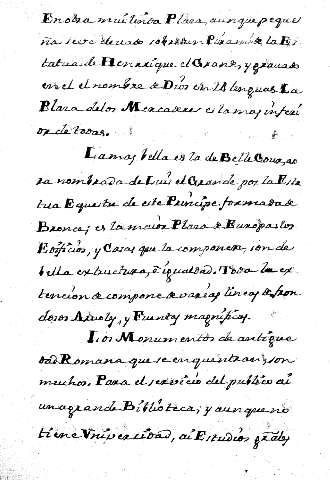 En otra mui linta Plaza, aunque peque
ña se ve elevado sobre un Piramide la Es
tatua de Henrrique el Grande, y gravado
en el el nombre de Dios en 18 lenguas. La
Plaza de los Mercaderes es la mas inferi
or de todas.
La mas bella es la de Belle Cour, ao
ra nombrada de Luis el Grande por la Esta
tua Equestre de este Principe formada de
Bronce; es la maior Plaza de Europa: los
Edificios, y Casas que la componen, son de
bella extructura, è igualdad. Toda la ex
tencion se compone de varias lineas de fron
dosos Arvoles, y Fuentes magnificas.
Los Monumentos de antigue
dad Romana que se enquentran, son
muchos. Para el servicio del publico ai
una grande Biblioteca; y aunque no
tiene Vniversidad, ai Estudios grãles